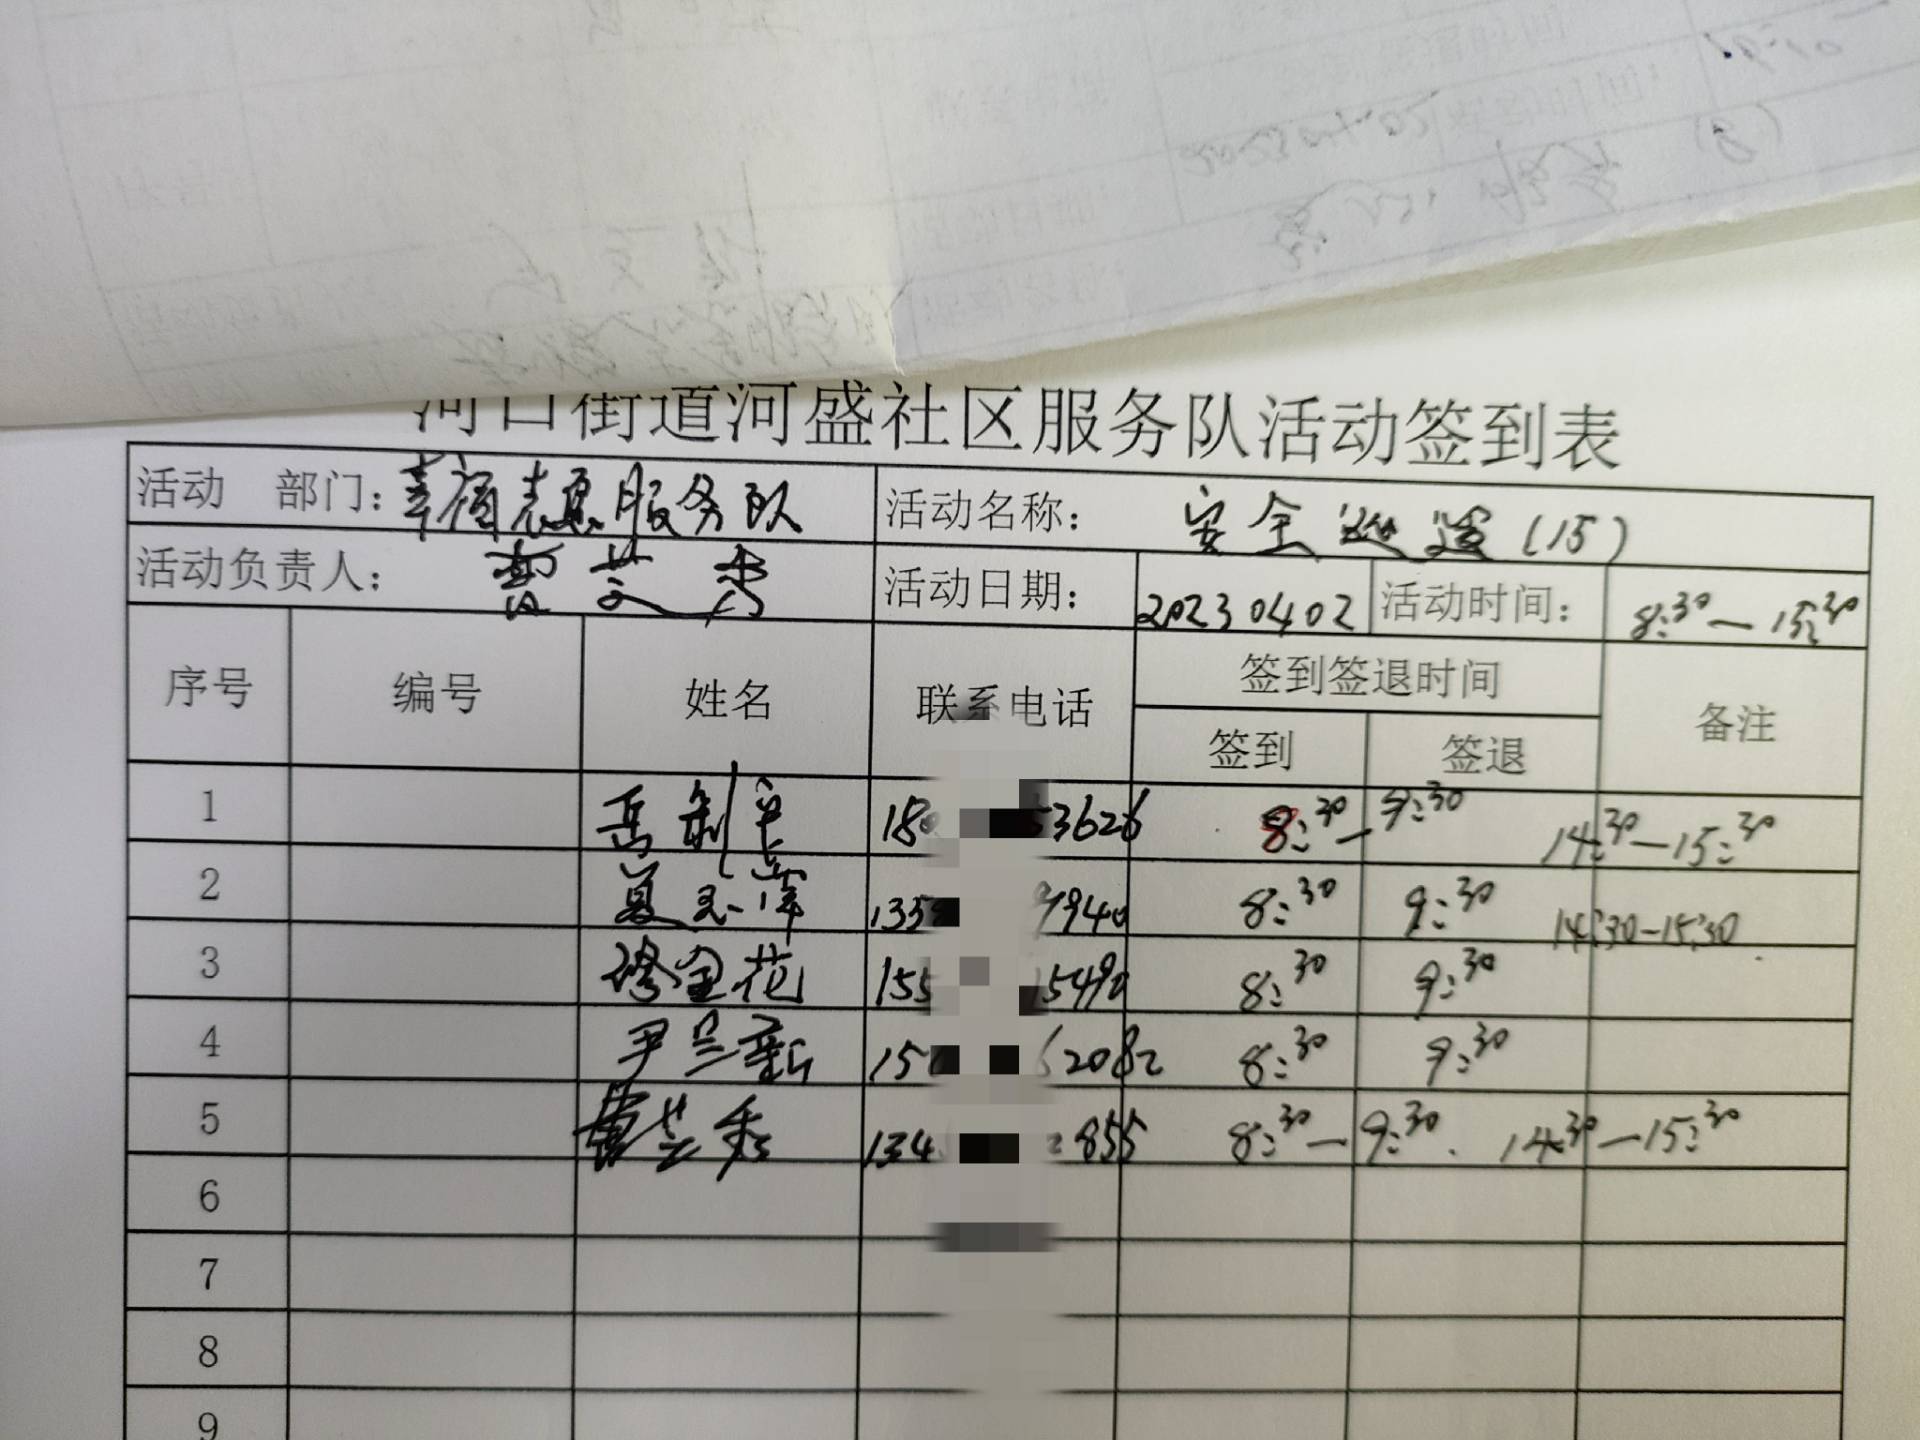 河口街道河盛社区服务队活动签到表
活动 部门: 幸福志愿服务队 活动名称: 安全巡逻(15)
活动负责人: 曹芝秀 活动日期: 20230402 活动时间: 8:30—15:30
序号 编号 姓名 联系电话 签到签退时间 备注
签到 签退
1 180 53626 8:30— 9:30 14:30—15:30
2 夏玉萍 1358 9940 8:30 9:30 14:30-15:30
3 修金花 155 15490 8:30 9:30
4 尹兰新 150 62082 8:30 9:30
5 曹芝秀 134 855 8:30—9:30. 14:30—15:30
6
7
8
9